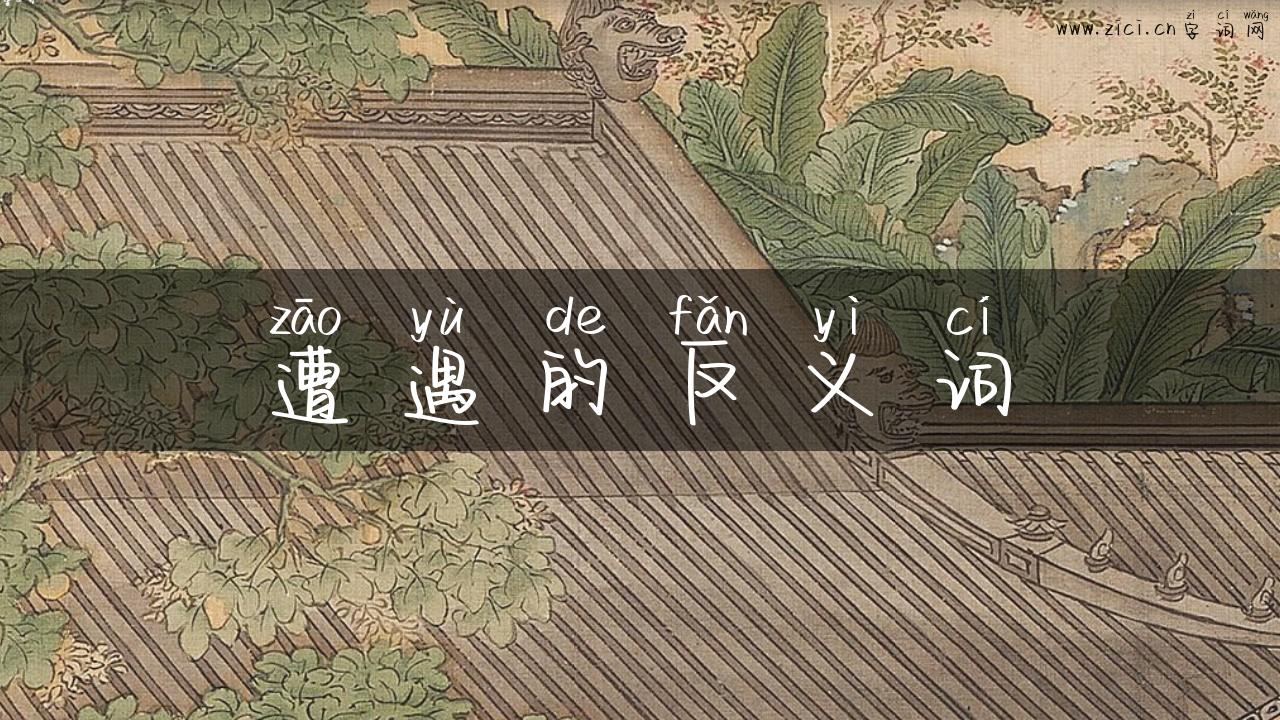 zì cí wǎng
www.zici.cn 字 词 网
zāo yù de fǎn yì cí
遭 遇 的 反 义 词